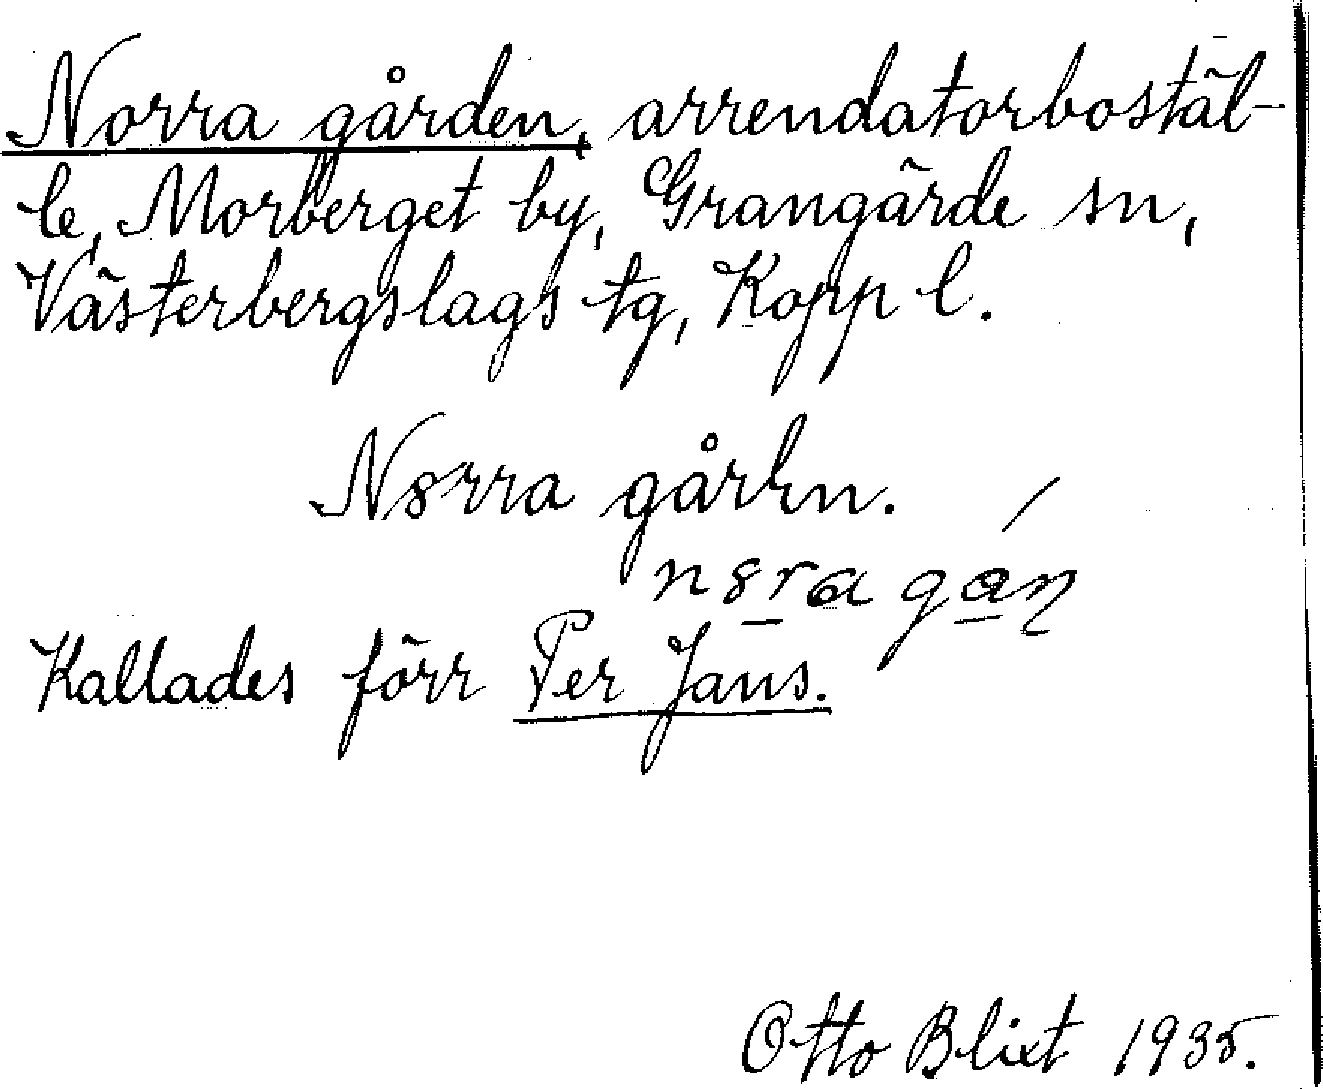 Norra gården, arrendatorbostäl-
le, Morberget by, Grangärde sn,
Västerbergslags tg, Kopp l.
N8rra gårn.
n8ra gán
Kallades förr Per Jans.
Otto Blixt 1935.